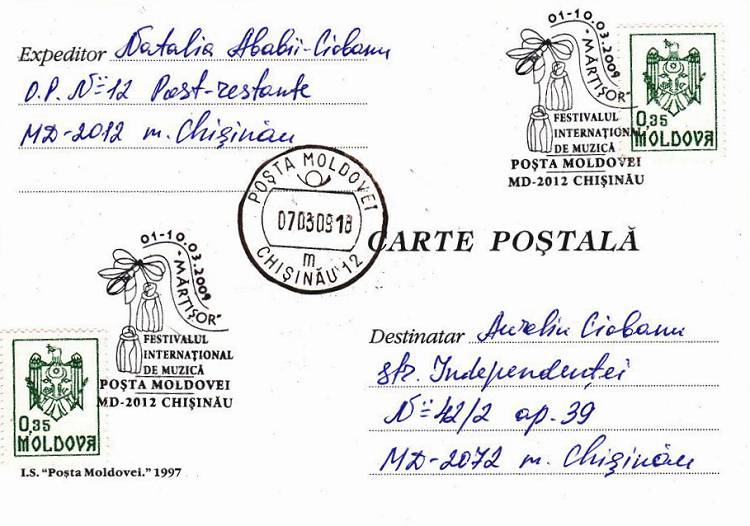 Expeditor Natalia Ababii-Ciobanu
O.P. Nº12 Post-restante
MD-2012 m. Chişinău
01-10.03.2009
"MĂRŢIŞOR"
FESTIVALUL
INTERNAŢIONAL
DE MUZICĂ
POŞTA MOLDOVEI
MD-2012 CHIŞINĂU
0,35
MOLDOVA
POŞTA MOLDOVEI
07030918
m
CHIŞINĂU 12
CARTE POŞTALĂ
01-10.03.2009
"MĂRŢIŞOR"
FESTIVALUL
INTERNAŢIONAL
DE MUZICĂ
POŞTA MOLDOVEI
MD-2012 CHIŞINĂU
0,35
MOLDOVA
Destinatar Aureliu Ciobanu
str. Independenţei
Nº42/2 ap. 39
MD-2072 m. Chişinău
I.S. "Poşta Moldovei." 1997